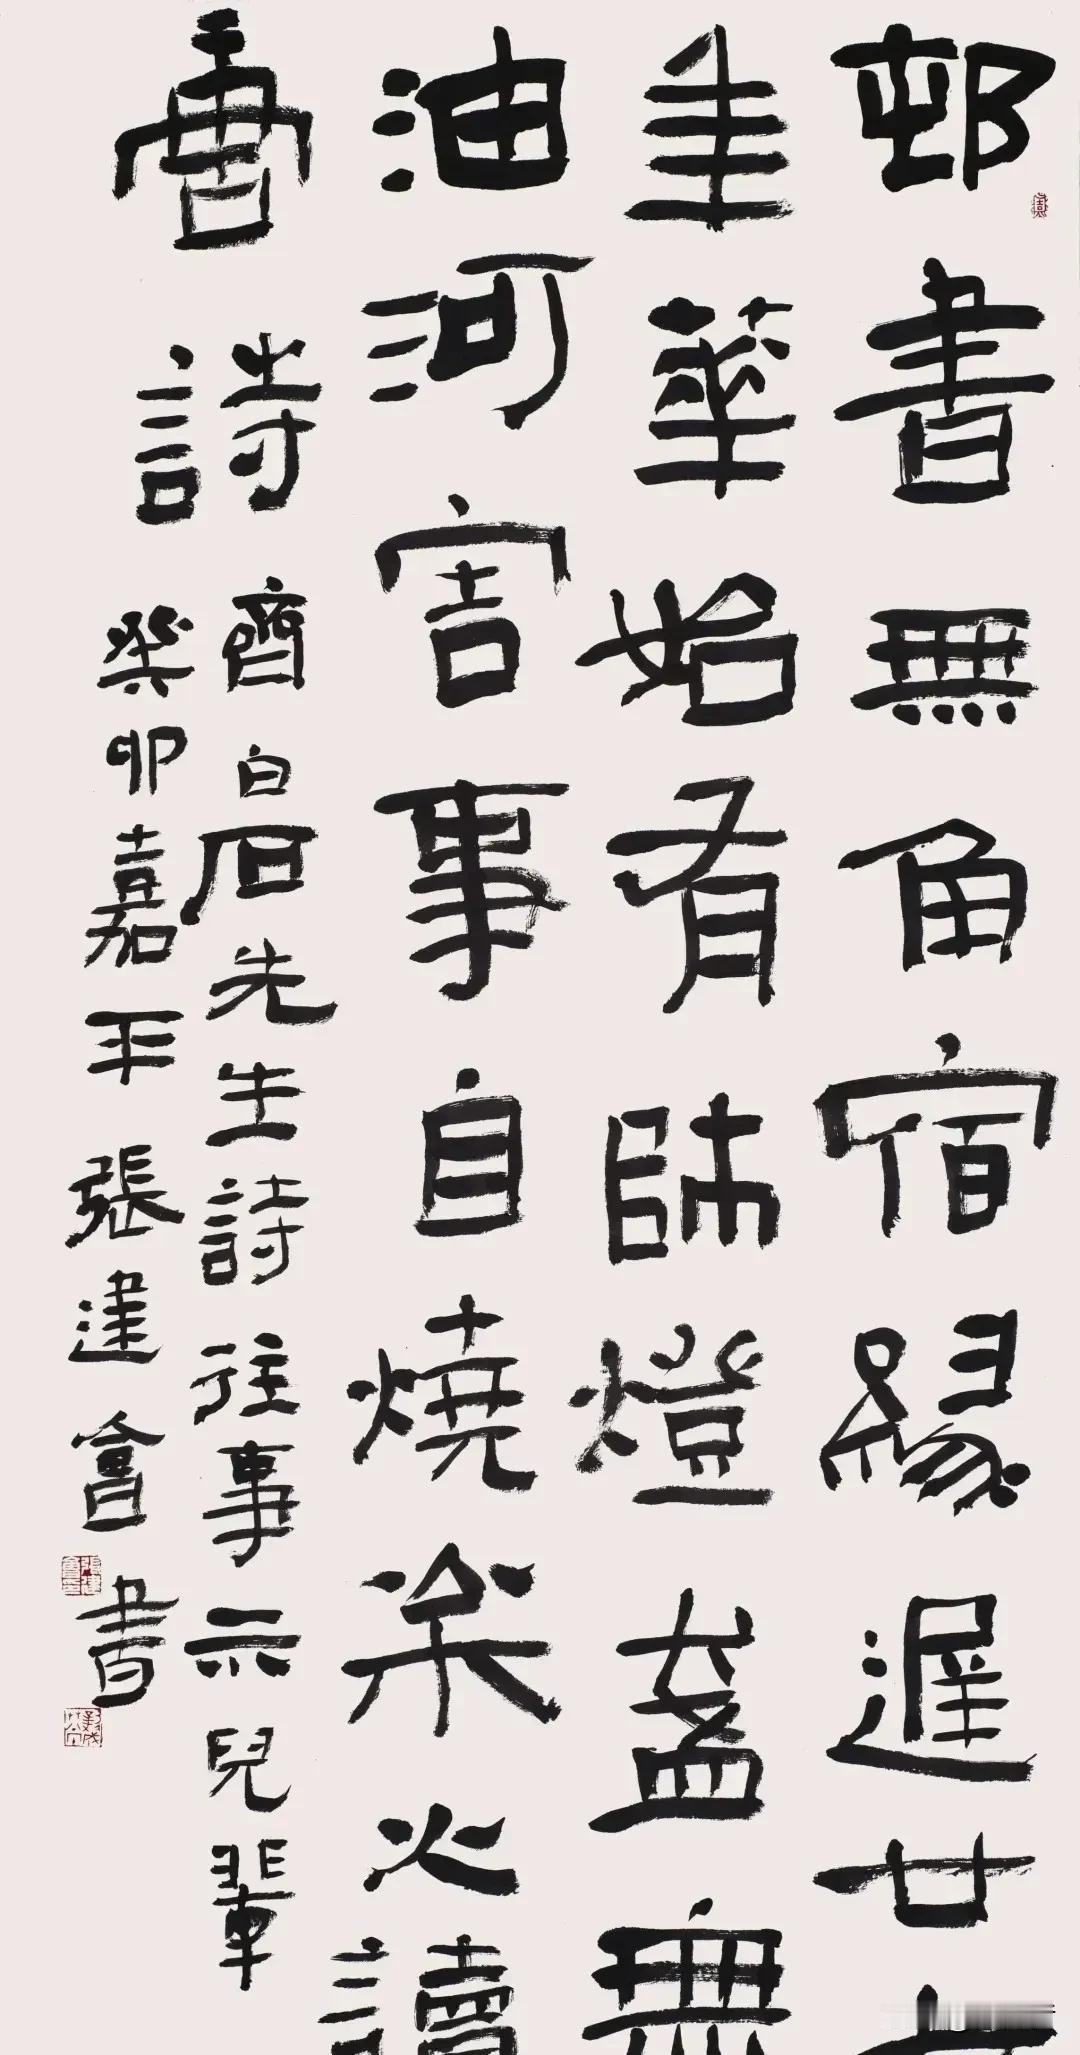 邨書無角宿緣遲廿
年華始有師燈盞無
油河害事自燒枀火讀
唐詩
齊白石先生詩往事示兒輩
癸卯嘉平張建會書